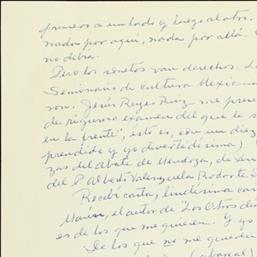 primero a un lado y luego al otro.
nadas por aquí, nada por allá.
no debía.
Pero los sonetos van derechos.
Seminario de Cultura Mexicana
ron. Jesús Reyes Ruiz me
de riguroso examen del que
en la frente", esto es, con un diez
prendido y yo divertidísima).
zas del Abate de Mendoza, de
del P. Alberto Valenzuela Rodarte S.
Recibí carta, lindísima
el autor de "Los Otros
es de los que me quieren. Y yo
De los que no me quieren